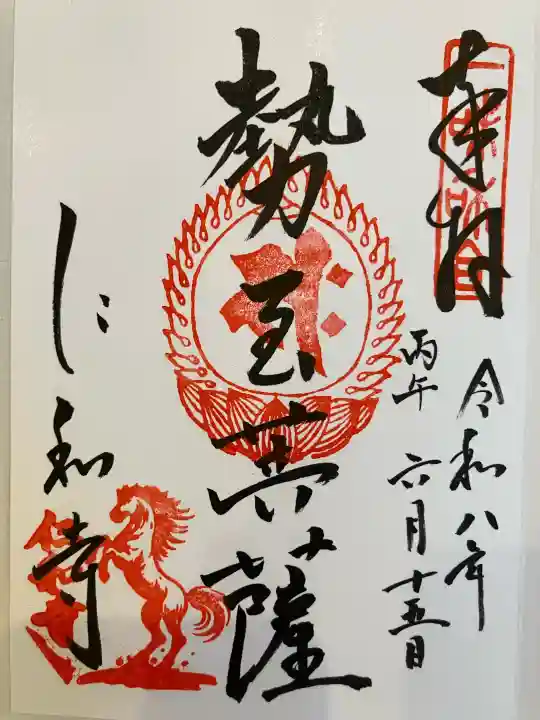 奉拝
令和八年
丙午 六月十五日
勢至菩薩
仁和寺